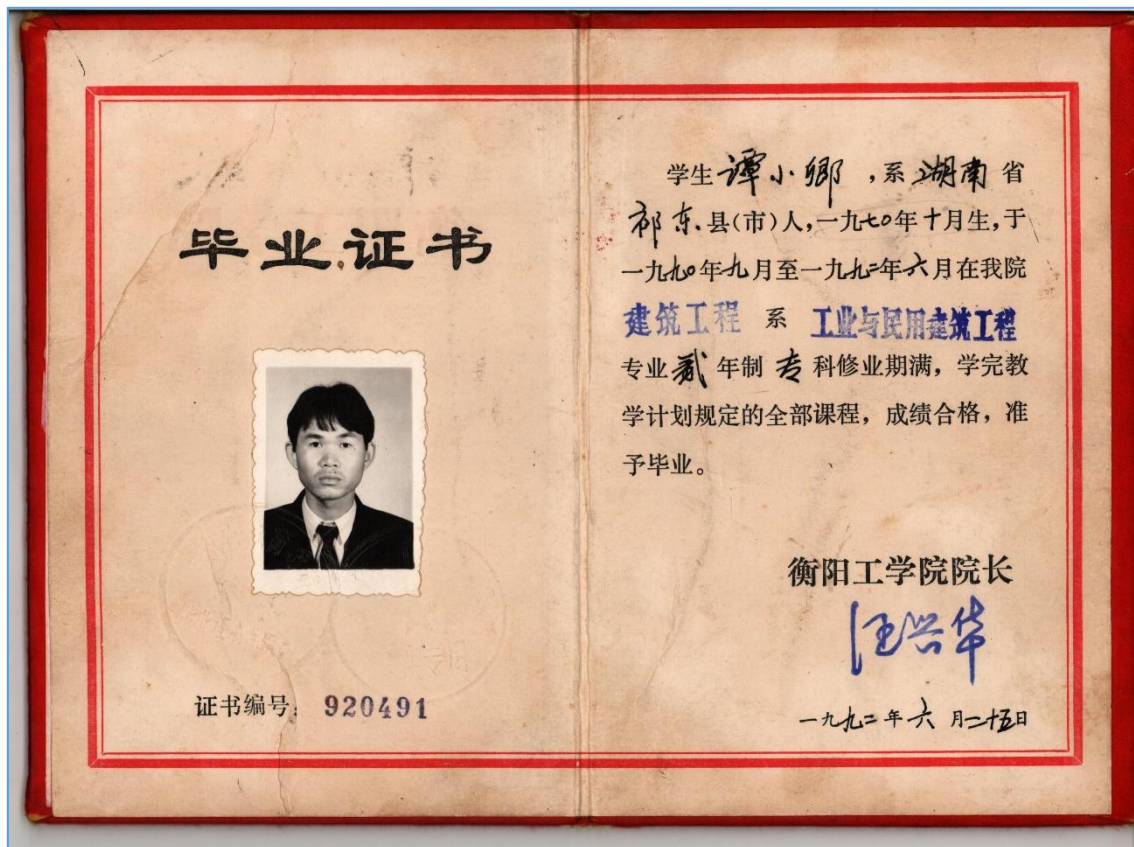 毕业证书
证书编号: 920491
学生谭小乡,系湖南省
祁东县(市)人,一九七0年十月生,于
一九九0年九月至一九九二年六月在我院
建筑工程 系 工业与民用建筑工程
专业贰年制专科修业期满,学完教
学计划规定的全部课程,成绩合格,准
予毕业。
衡阳工学院院长
汪兴华
一九九二年六月二十五日